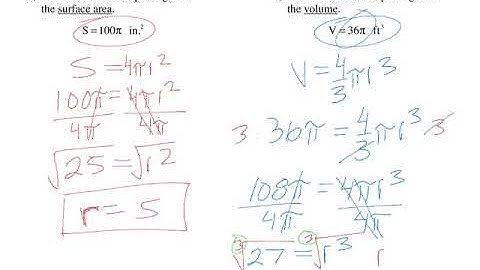 the surface area.
S = 100π in.²
S = 4πr²
100π = 4πr²
4π 4π
√25 = √r²
r = 5
the volume.
V = 36π ft³
V = 4/3 πr³
3 · 36π = 4/3 πr³ · 3
108π = 4πr³
4π 4π
∛27 = ∛r³ r